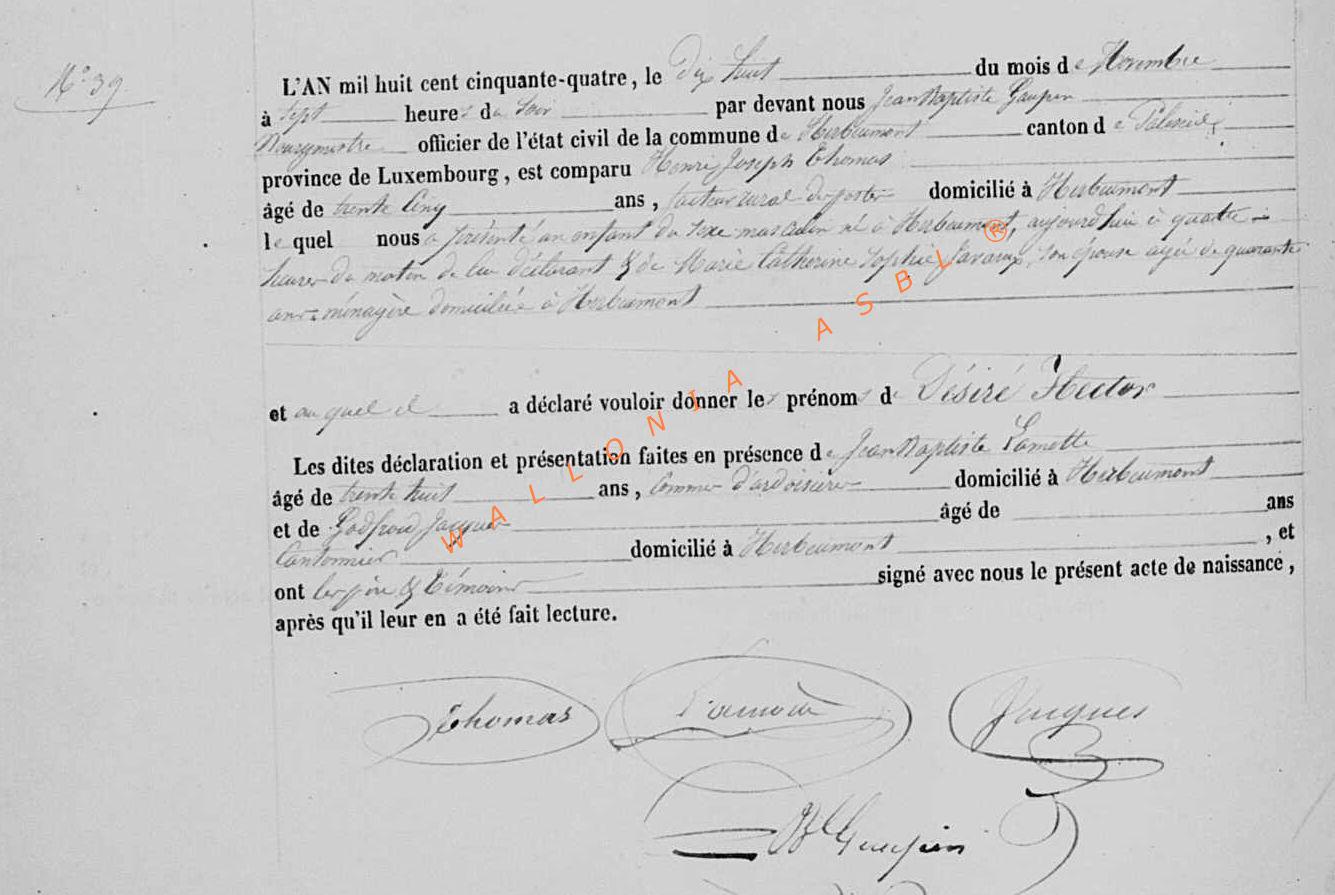 N° 39
L'AN mil huit cent cinquante-quatre, le dix huit du mois de Novembre
à sept heures du soir par devant nous Jean Baptiste Gaupin
Bourgmestre officier de l'état civil de la commune de Herbeumont canton de Paliseul,
province de Luxembourg, est comparu Henri Joseph Thomas
âgé de trente cinq ans, facteur rural des postes domicilié à Herbeumont
lequel nous a présenté un enfant du sexe masculin né à Herbeumont, aujourd'hui à quatre
heures du matin de lui déclarant & de Marie Catherine Sophie son épouse agée de quarante
ans ménagère domiciliée à Herbeumont
et auquel il a déclaré vouloir donner les prénoms de Désiré Hector
Les dites déclaration et présentation faites en présence de Jean Baptiste Lamotte
âgé de trente huit ans, commis d'ardoisières domicilié à Herbeumont
et de Godfroid Jacques âgé de ans
Cantonnier domicilié à Herbeumont, et
ont les père & témoins signé avec nous le présent acte de naissance,
après qu'il leur en a été fait lecture.
Thomas Lamotte Jacques
JB Gaupin
WALLONIA ASBL ®